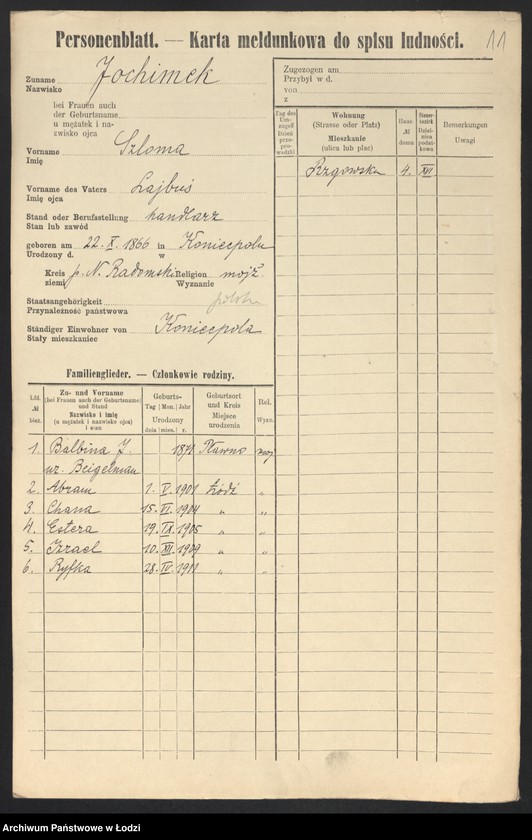 Personenblatt. — Karta meldunkowa do spisu ludności.
11
Zuname
Nazwisko
Jochimek
bei Frauen auch
der Geburtsname
u mężatek i na-
zwisko ojca
Vorname
Imię
Szloma
Vorname des Vaters
Imię ojca
Lajbuś
Stand oder Berufsstellung
Stan lub zawód
handlarz
geboren am 22. X. 1866 in Koniecpolu
Urodzony d. w
Kreis p. N. Radomski Religion mojż
ziemi Wyznanie
Staatsangehörigkeit
Przynależność państwowa
Ständiger Einwohner von Koniecpola
Stały mieszkaniec
Zugezogen am
Przybył w d.
von
z
Tag des Um-
zuges
Dzień
prze-
pro-
wadzki
Wohnung
(Strasse oder Platz)
Mieszkanie
(ulica lub plac)
Haus-
№
domu
Steuer-
bezirk
Dziel-
nica
podat-
kowa
Bemerkungen
Uwagi
Rzgowska 4. XII
Familienglieder. — Członkowie rodziny.
Lfd.
№
bież.
Zu- und Vorname
(bei Frauen auch der Geburtsname)
und Stand
Nazwisko i imię
(u mężatek i nazwisko ojca)
i stan
Geburts-
Tag Mon. Jahr
Urodzony
dnia mies. r.
Geburtsort
und Kreis
Miejsce
urodzenia
Rel.
Wyzn.
1. Balbina J. 1871 Pławno moj
ur. Beigelman
2. Abram 1. V. 1901 Łódź "
3. Chana 15. VI. 1904 " "
4. Estera 19. IX. 1905 " "
5. Izrael 10. XII. 1909 " "
6. Ryfka 28. IV. 1911 " "
Archiwum Państwowe w Łodzi